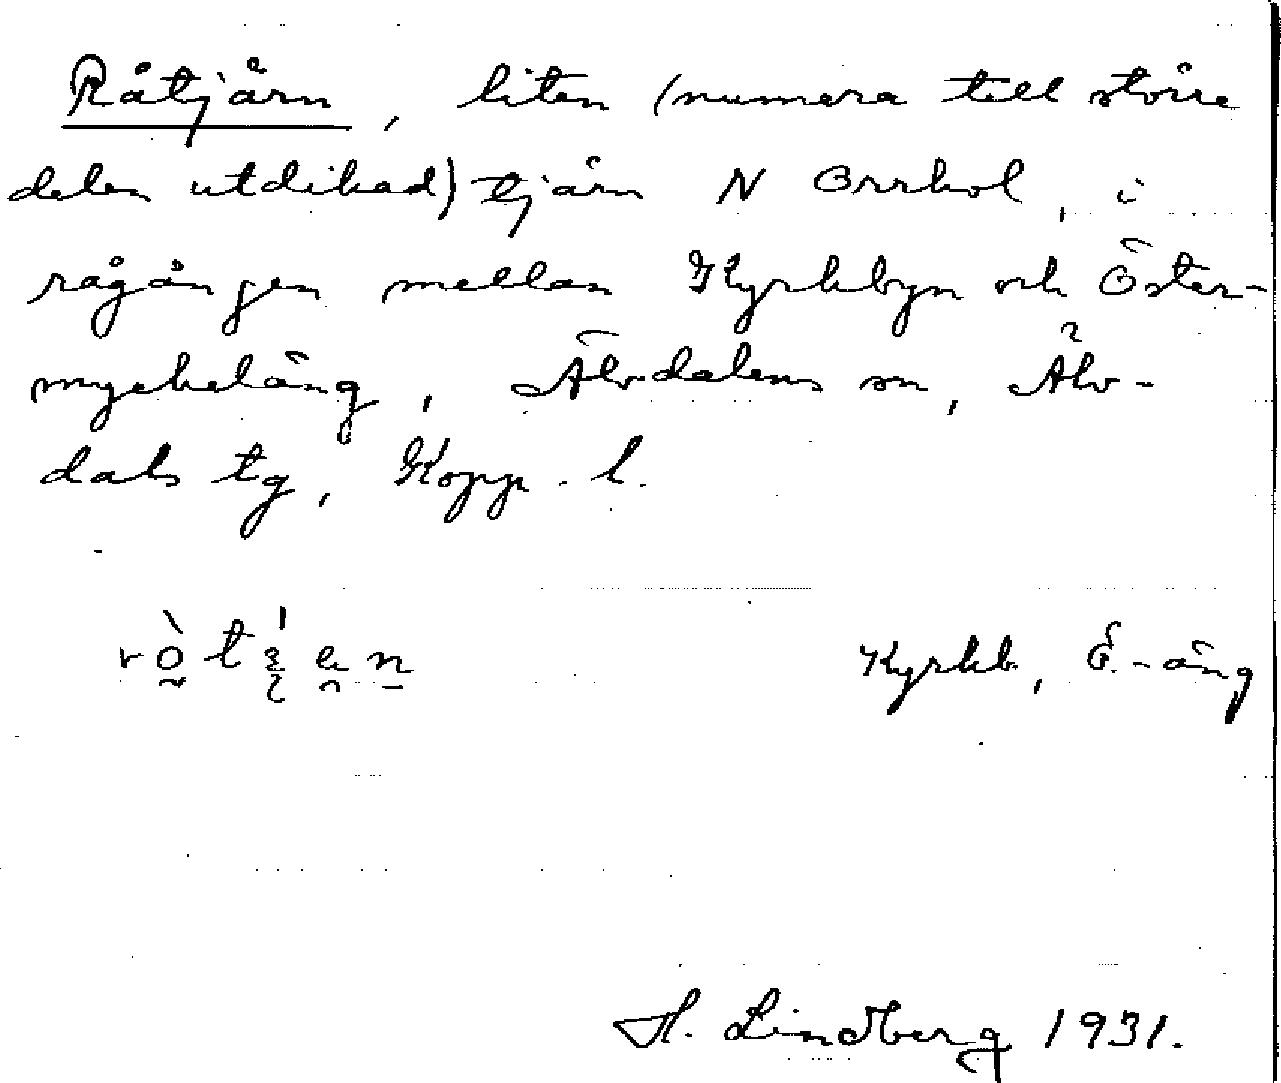 Råtjärn, liten (numera till större
delen utdikad) tjärn N Orrkol, i
rågången mellan Kyrkbyn och Öster-
myckeläng, Älvdalens sn, Älv-
dals tg, Kopp. l.
Kyrkb, Ö.-äng
H. Lindberg 1931.